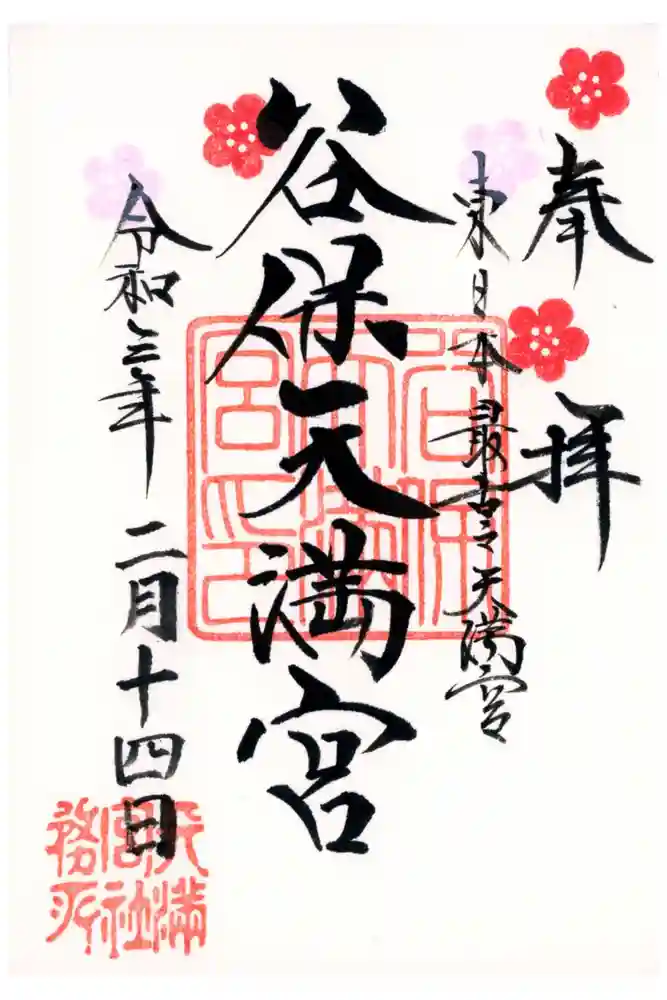 奉拝
東日本最古之天満宮
谷保天満宮
令和三年二月十四日
谷保天満宮印
天満宮社務所